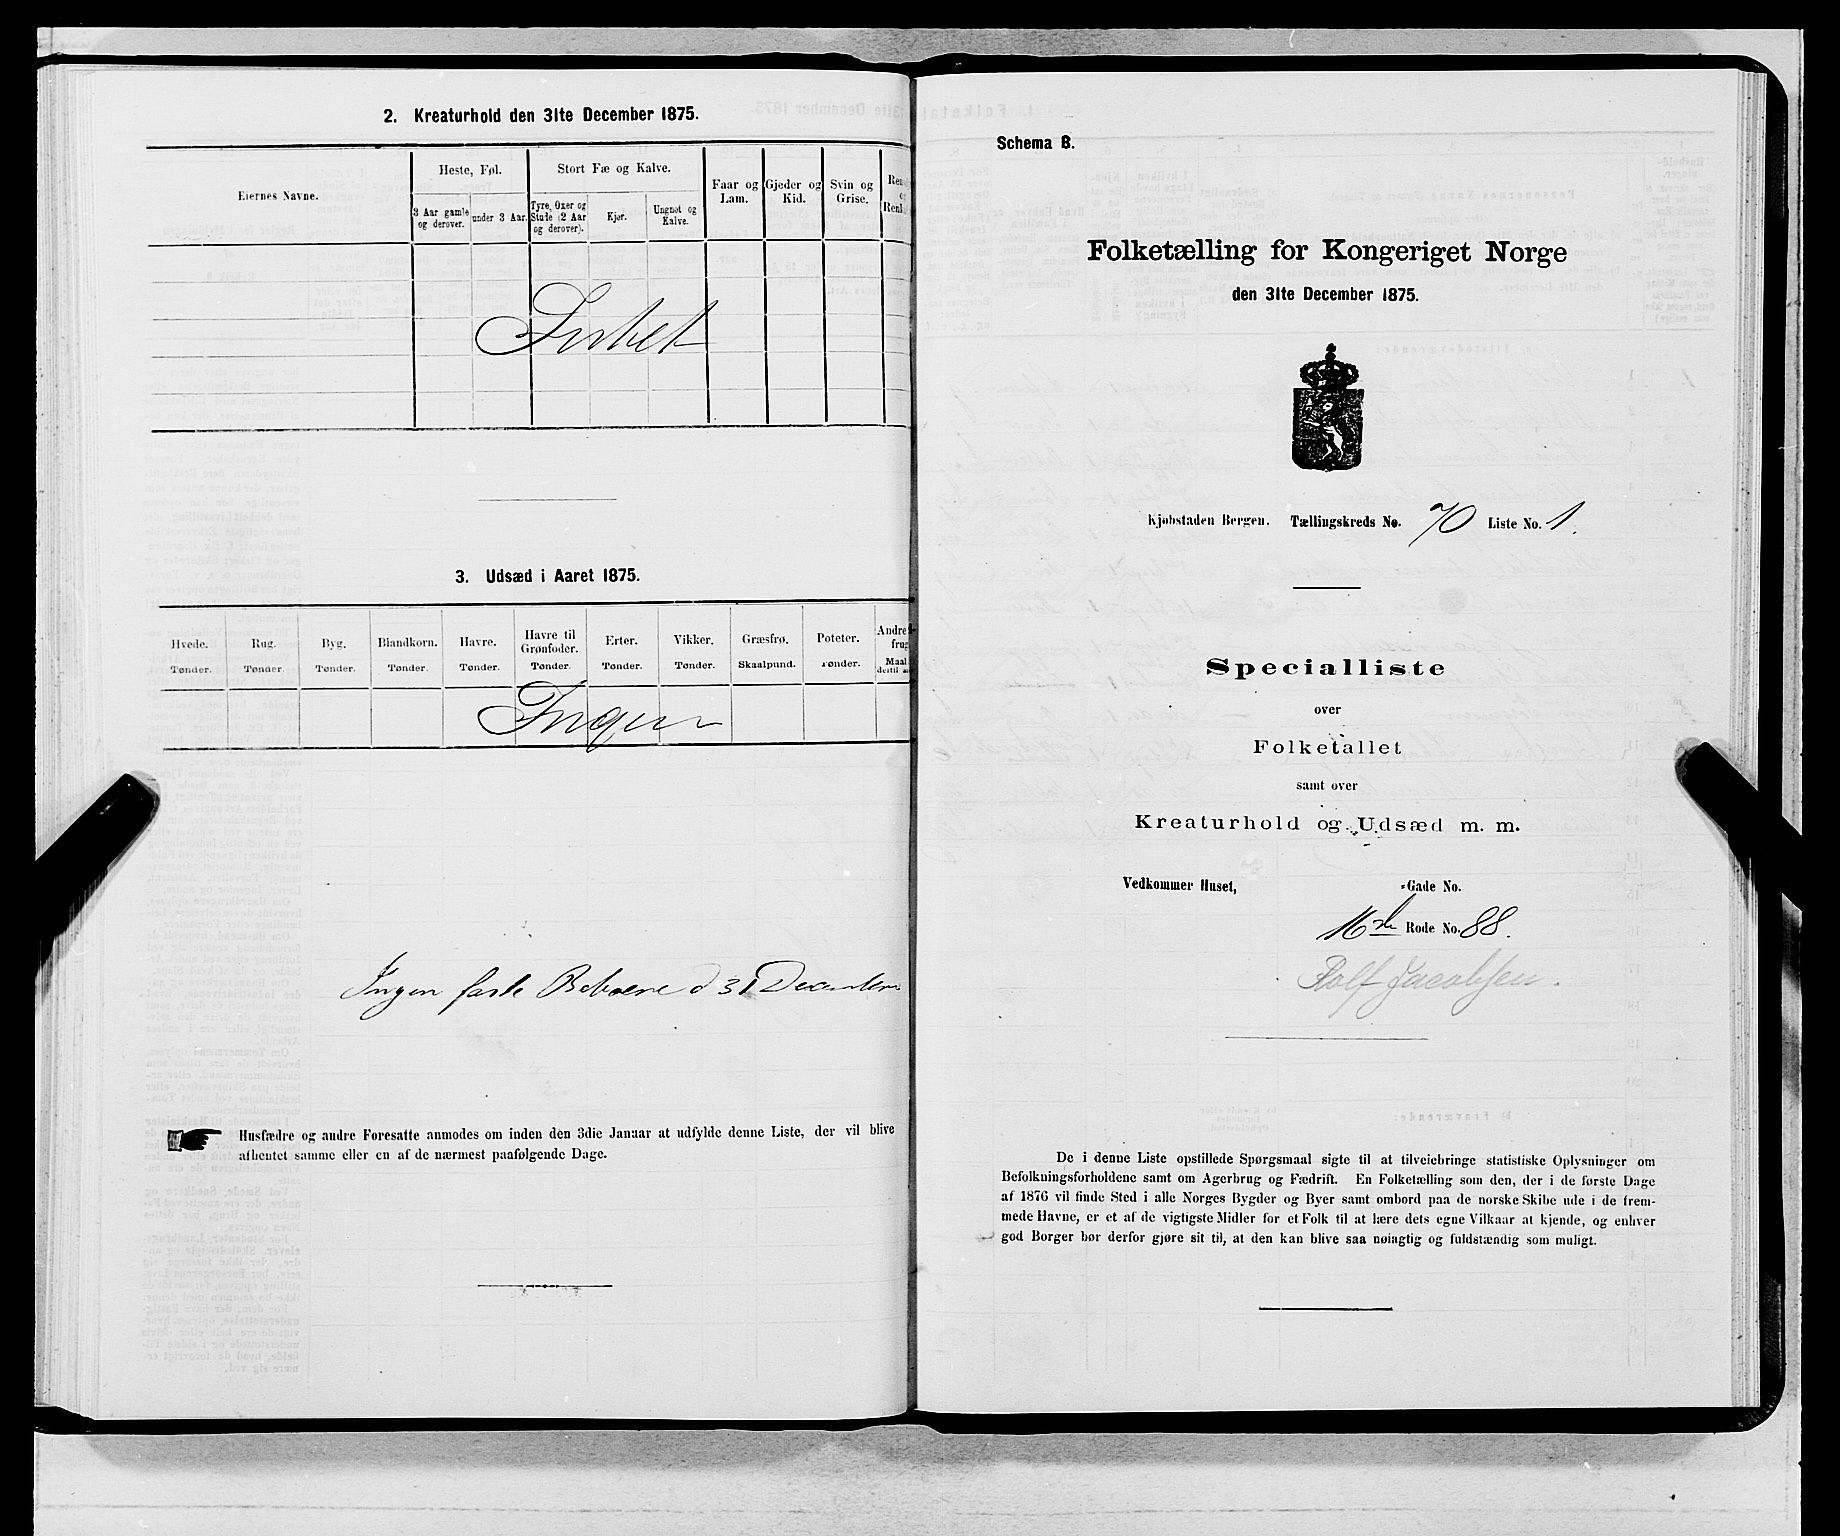 2. Kreaturhold den 31te December 1875.
Eiernes Navne.
Heste, Føl.
Stort Fæ og Kalve.
3 Aar gamle og derover.
under 3 Aar.
Tyre, Oxer og Stude (2 Aar og derover).
Kjør.
Ungnøt og Kalve.
Faar og Lam.
Gjeder og Kid.
Svin og Grise.
Intet
3. Udsæd i Aaret 1875.
Hvede. Rug. Byg. Blandkorn. Havre. Havre til Grønfoder. Erter. Vikker. Græsfrø. Poteter. Andre
Tønder. Tønder. Tønder. Tønder. Tønder. Tønder. Tønder. Tønder. Skaalpund. Tønder. Maal
Ingen
Ingen faste Beboere d 31 December
Husfædre og andre Foresatte anmodes om inden den 3die Januar at udfylde denne Liste, der vil blive
afhentet samme eller en af de nærmest paafølgende Dage.
Schema B.
Folketælling for Kongeriget Norge
den 31te December 1875.
Kjøbstaden Bergen. Tællingskreds No. 70 Liste No. 1.
Specialliste
over
Folketallet
samt over
Kreaturhold og Udsæd m. m.
Vedkommer Huset, Gade No.
16de Rode No. 88.
Rolf Jacobsen.
De i denne Liste opstillede Spørgsmaal sigte til at tilveiebringe statistiske Oplysninger om
Befolkningsforholdene samt om Agerbrug og Fædrift. En Folketælling som den, der i de første Dage
af 1876 vil finde Sted i alle Norges Bygder og Byer samt ombord paa de norske Skibe ude i de frem-
mede Havne, er et af de vigtigste Midler for et Folk til at lære dets egne Vilkaar at kjende, og enhver
god Borger bør derfor gjøre sit til, at den kan blive saa nøiagtig og fuldstændig som muligt.